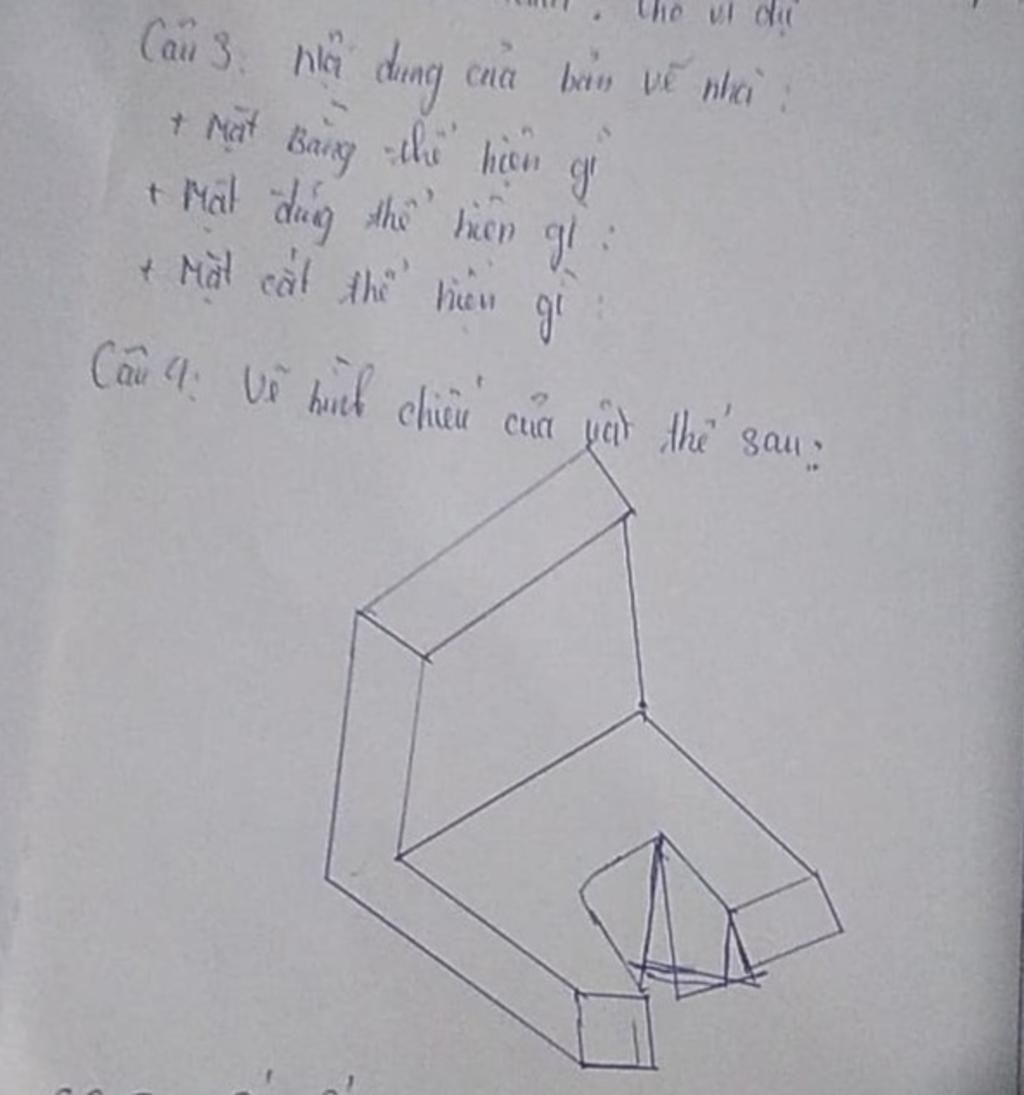 Cho ví dụ
Câu 3: Nội dung của bản vẽ nhà:
+ Mặt Bằng thể hiện gì
+ Mặt đứng thể hiện gì:
+ Mặt cắt thể hiện gì:
Câu 4: Vẽ hình chiếu của vật thể sau: